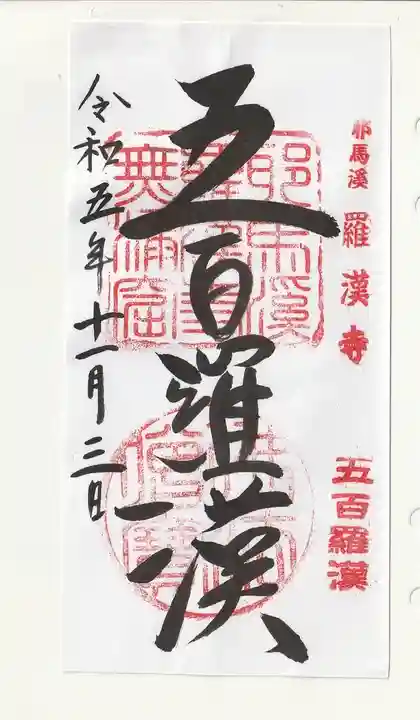 耶馬溪 羅漢寺 五百羅漢
五百羅漢
令和五年十一月三日